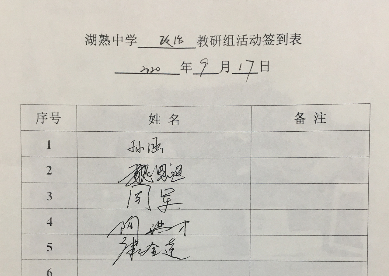 湖熟中学 政治 教研组活动签到表
2020 年 9 月 17 日
序号 姓名 备注
1 孙涵
2
3 周军
4 陶洪才
5
6